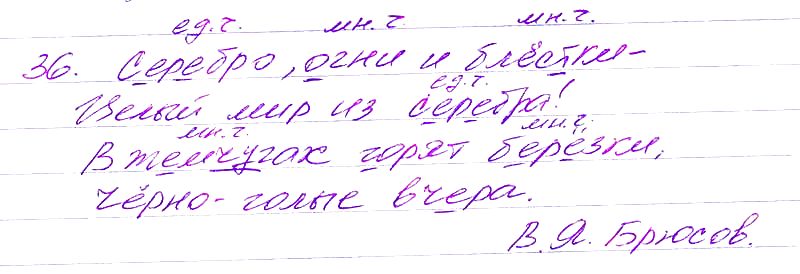 ед.ч. мн.ч мн.ч.
36. Серебро, огни и блёстки-
ед.ч.
Целый мир из серебра!
мн.ч. мн.ч.
В жемчугах горят берёзки,
Чёрно-голые вчера.
В.Я. Брюсов.